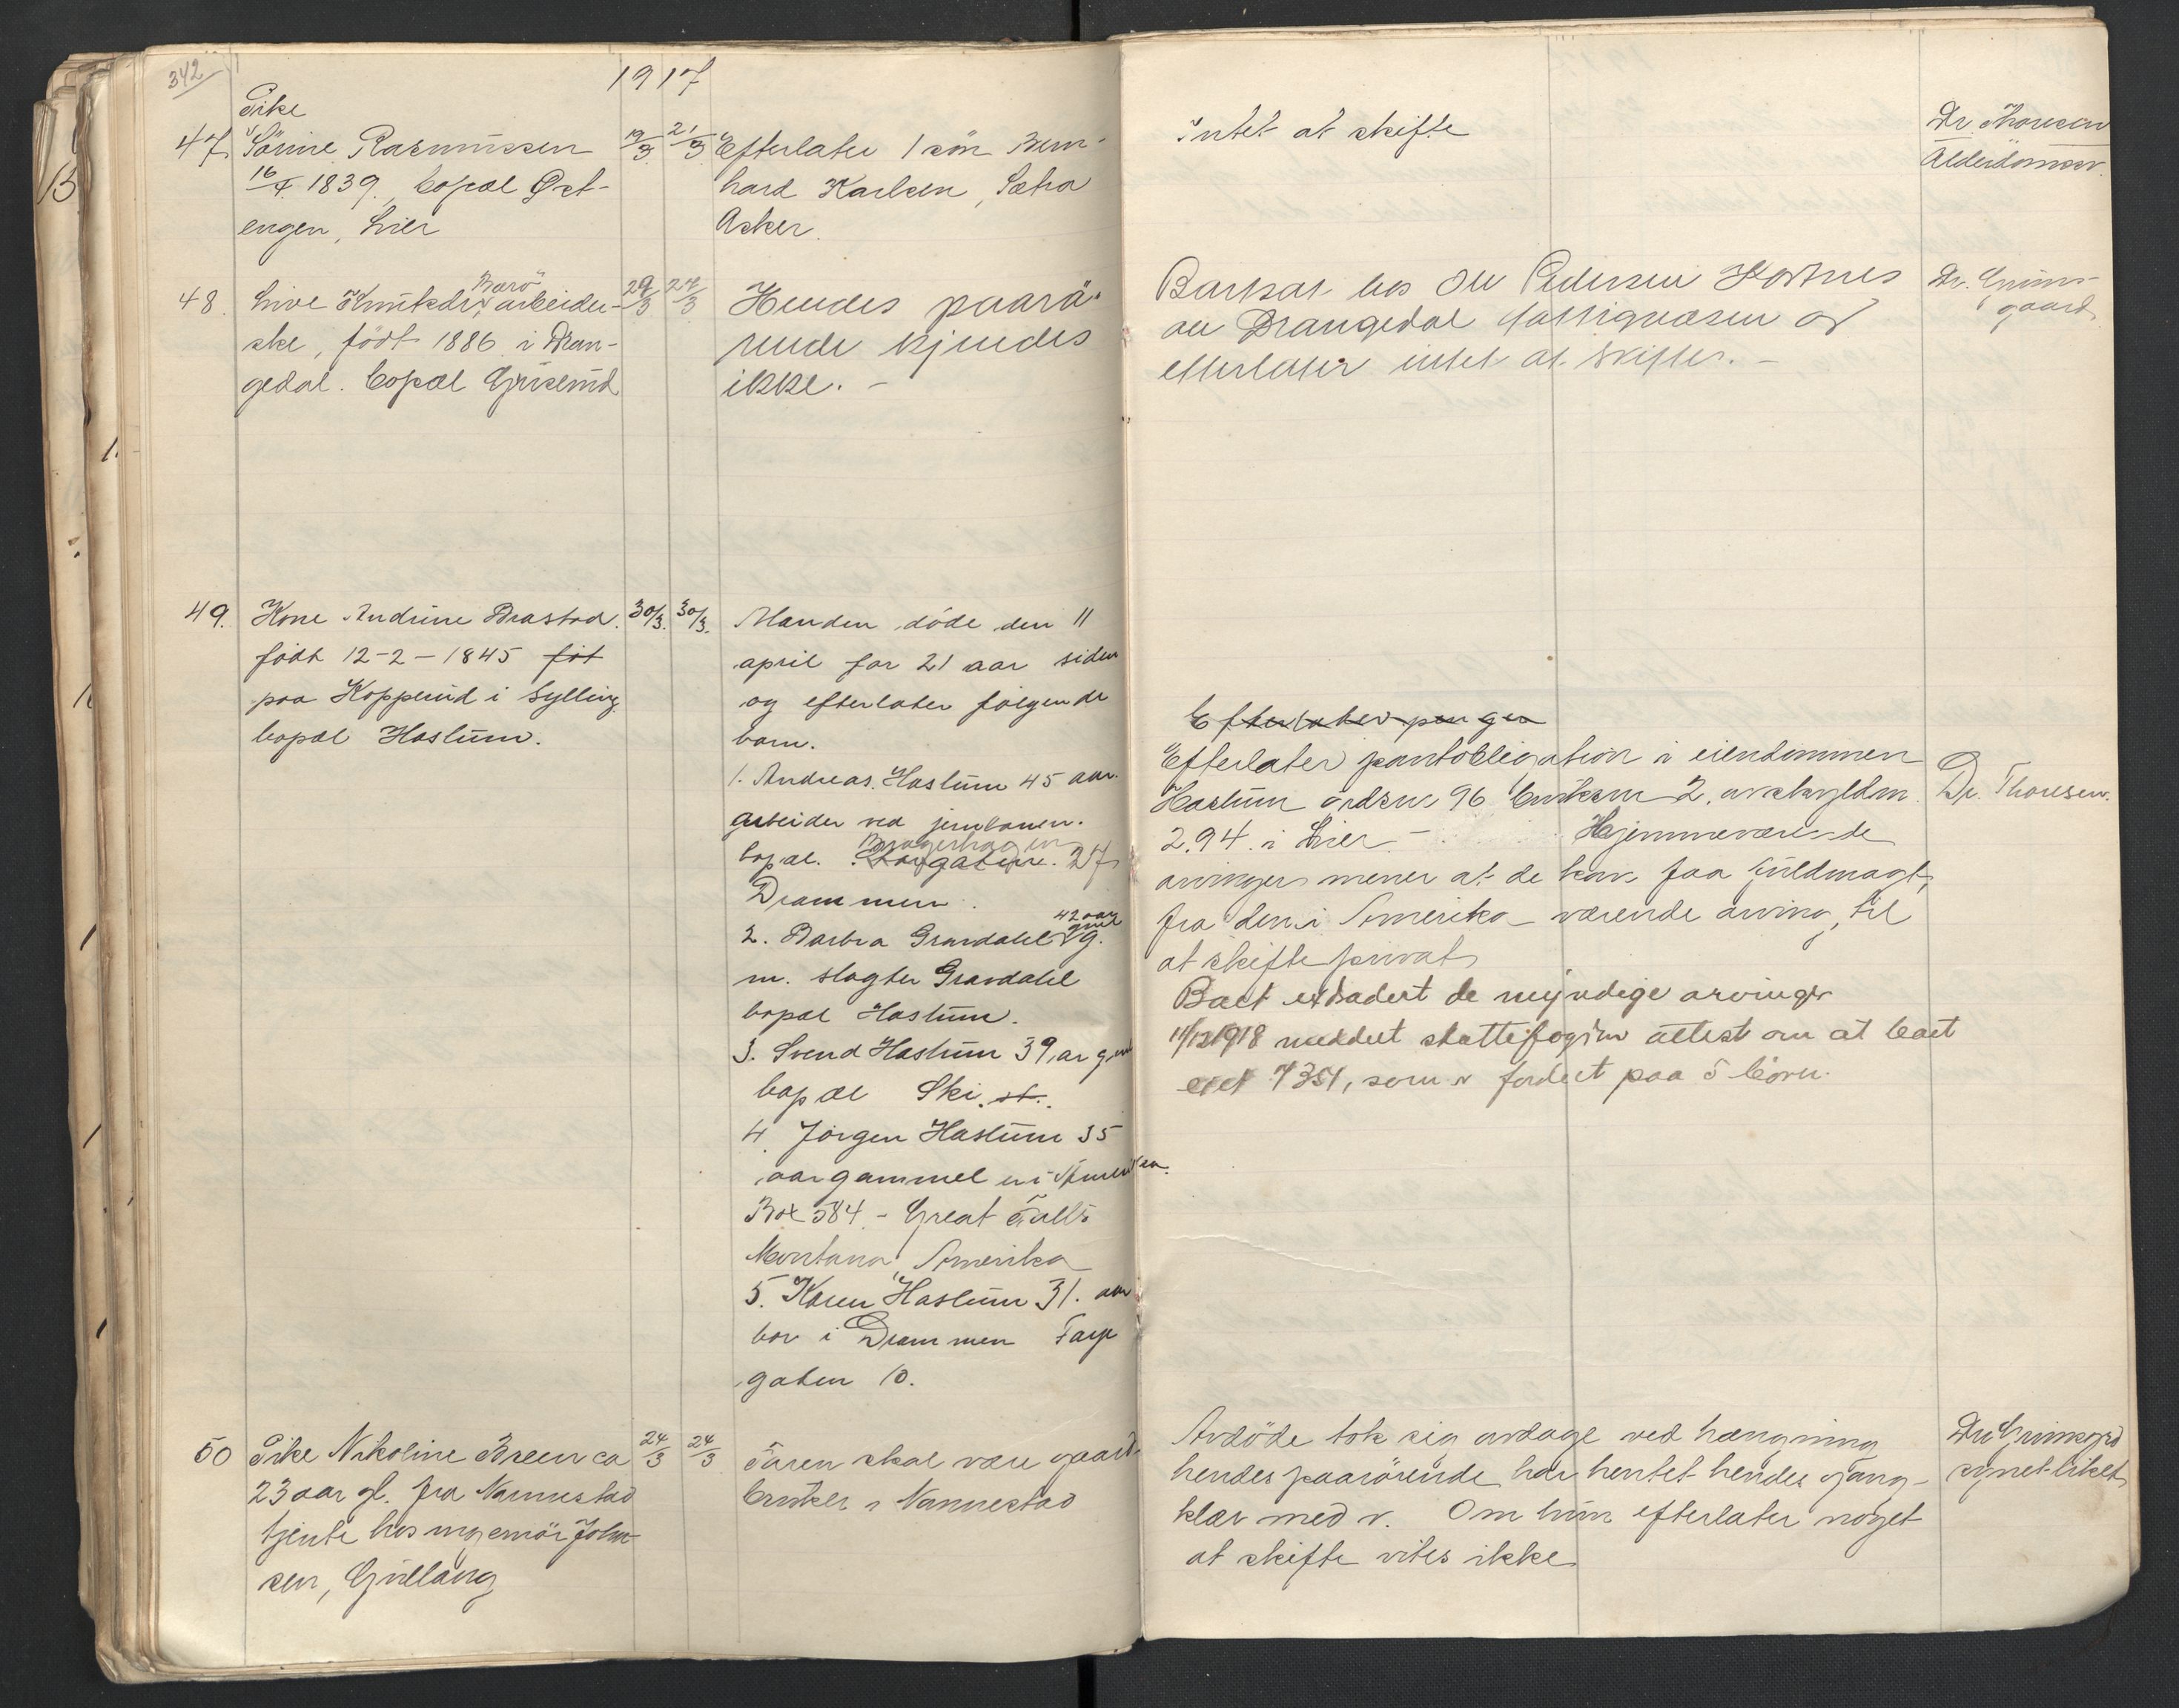 342
1917
47
Pike
Sörine Rasmussen
16/4 1839, bopæl Øst-
engen, Lier
19/3
21/3
Efterlater 1 sön Bern-
hard Karlsen, Sætra
Asker.
Intet at skifte
Dr. Thoresen
Alderdomssv.
48.
Live Knutsdr. Barö arbeider-
ske, födt 1886 i Dran-
gedal. bopæl Gruserud
29/3
29/3
Hendes paarö-
rende kjendes
ikke. -
Barsat hos Ole Pedersen
av Drangedal fattigvæsen og
efterlater intet at skifte. -
Dr. Grims-
gaard
49.
Kone Andrine Brastad.
födt 12-2-1845 föt
paa Kopperud i Sylling
bopæl Haslum.
30/3.
30/3.
Manden döde den 11
april for 21 aar siden
og efterlater følgende
barn.
1. Andreas Haslum 45 aar.
arbeider ved jernbanen.
Bragerhagen
bopæl. Storgatene. 27
Drammen.
42 aar
gml
2. Barbra Gravdahl g.
m. slagter Gravdahl
bopæl Haslum.
3. Svend Haslum 39 ar gml
bopæl Ski. st.
4. Jörgen Haslum 35
aar gammel er i Amerika.
Box 584 - Great Falls
Montana, Amerika
5. Karen Haslum 31. aar
bor i Drammen Farge
gaten 10.
Efterlater penger
Efterlater pantobligation i eiendommen
Haslum gardsnr 96 bruksnr 2, avskyldn.
2.94. i Lier - Hjemmeværende
arvinger mener at de kan faa fuldmagt
fra den i Amerika værende arving, til
at skifte privat
Boet extradert de myndige arvinger
11/12 1918 meddelt skattefogden attest om at boet
eiet 7351, som er fordelt paa 5 börn.
Dr. Thoresen.
50
Pike Nikoline Breen ca
23 aar gl. fra Nannestad
tjente hos ingeniör John-
sen, Gullaug
24/3
24/3
Faren skal være gaard-
bruker i Nannestad
Avdöde tok sig avdage ved hængning
hendes paarörende har hentet hendes gang-
klær med v. Om hun efterlater noget
at skifte vites ikke
Dr Grimsgrd
synet liket